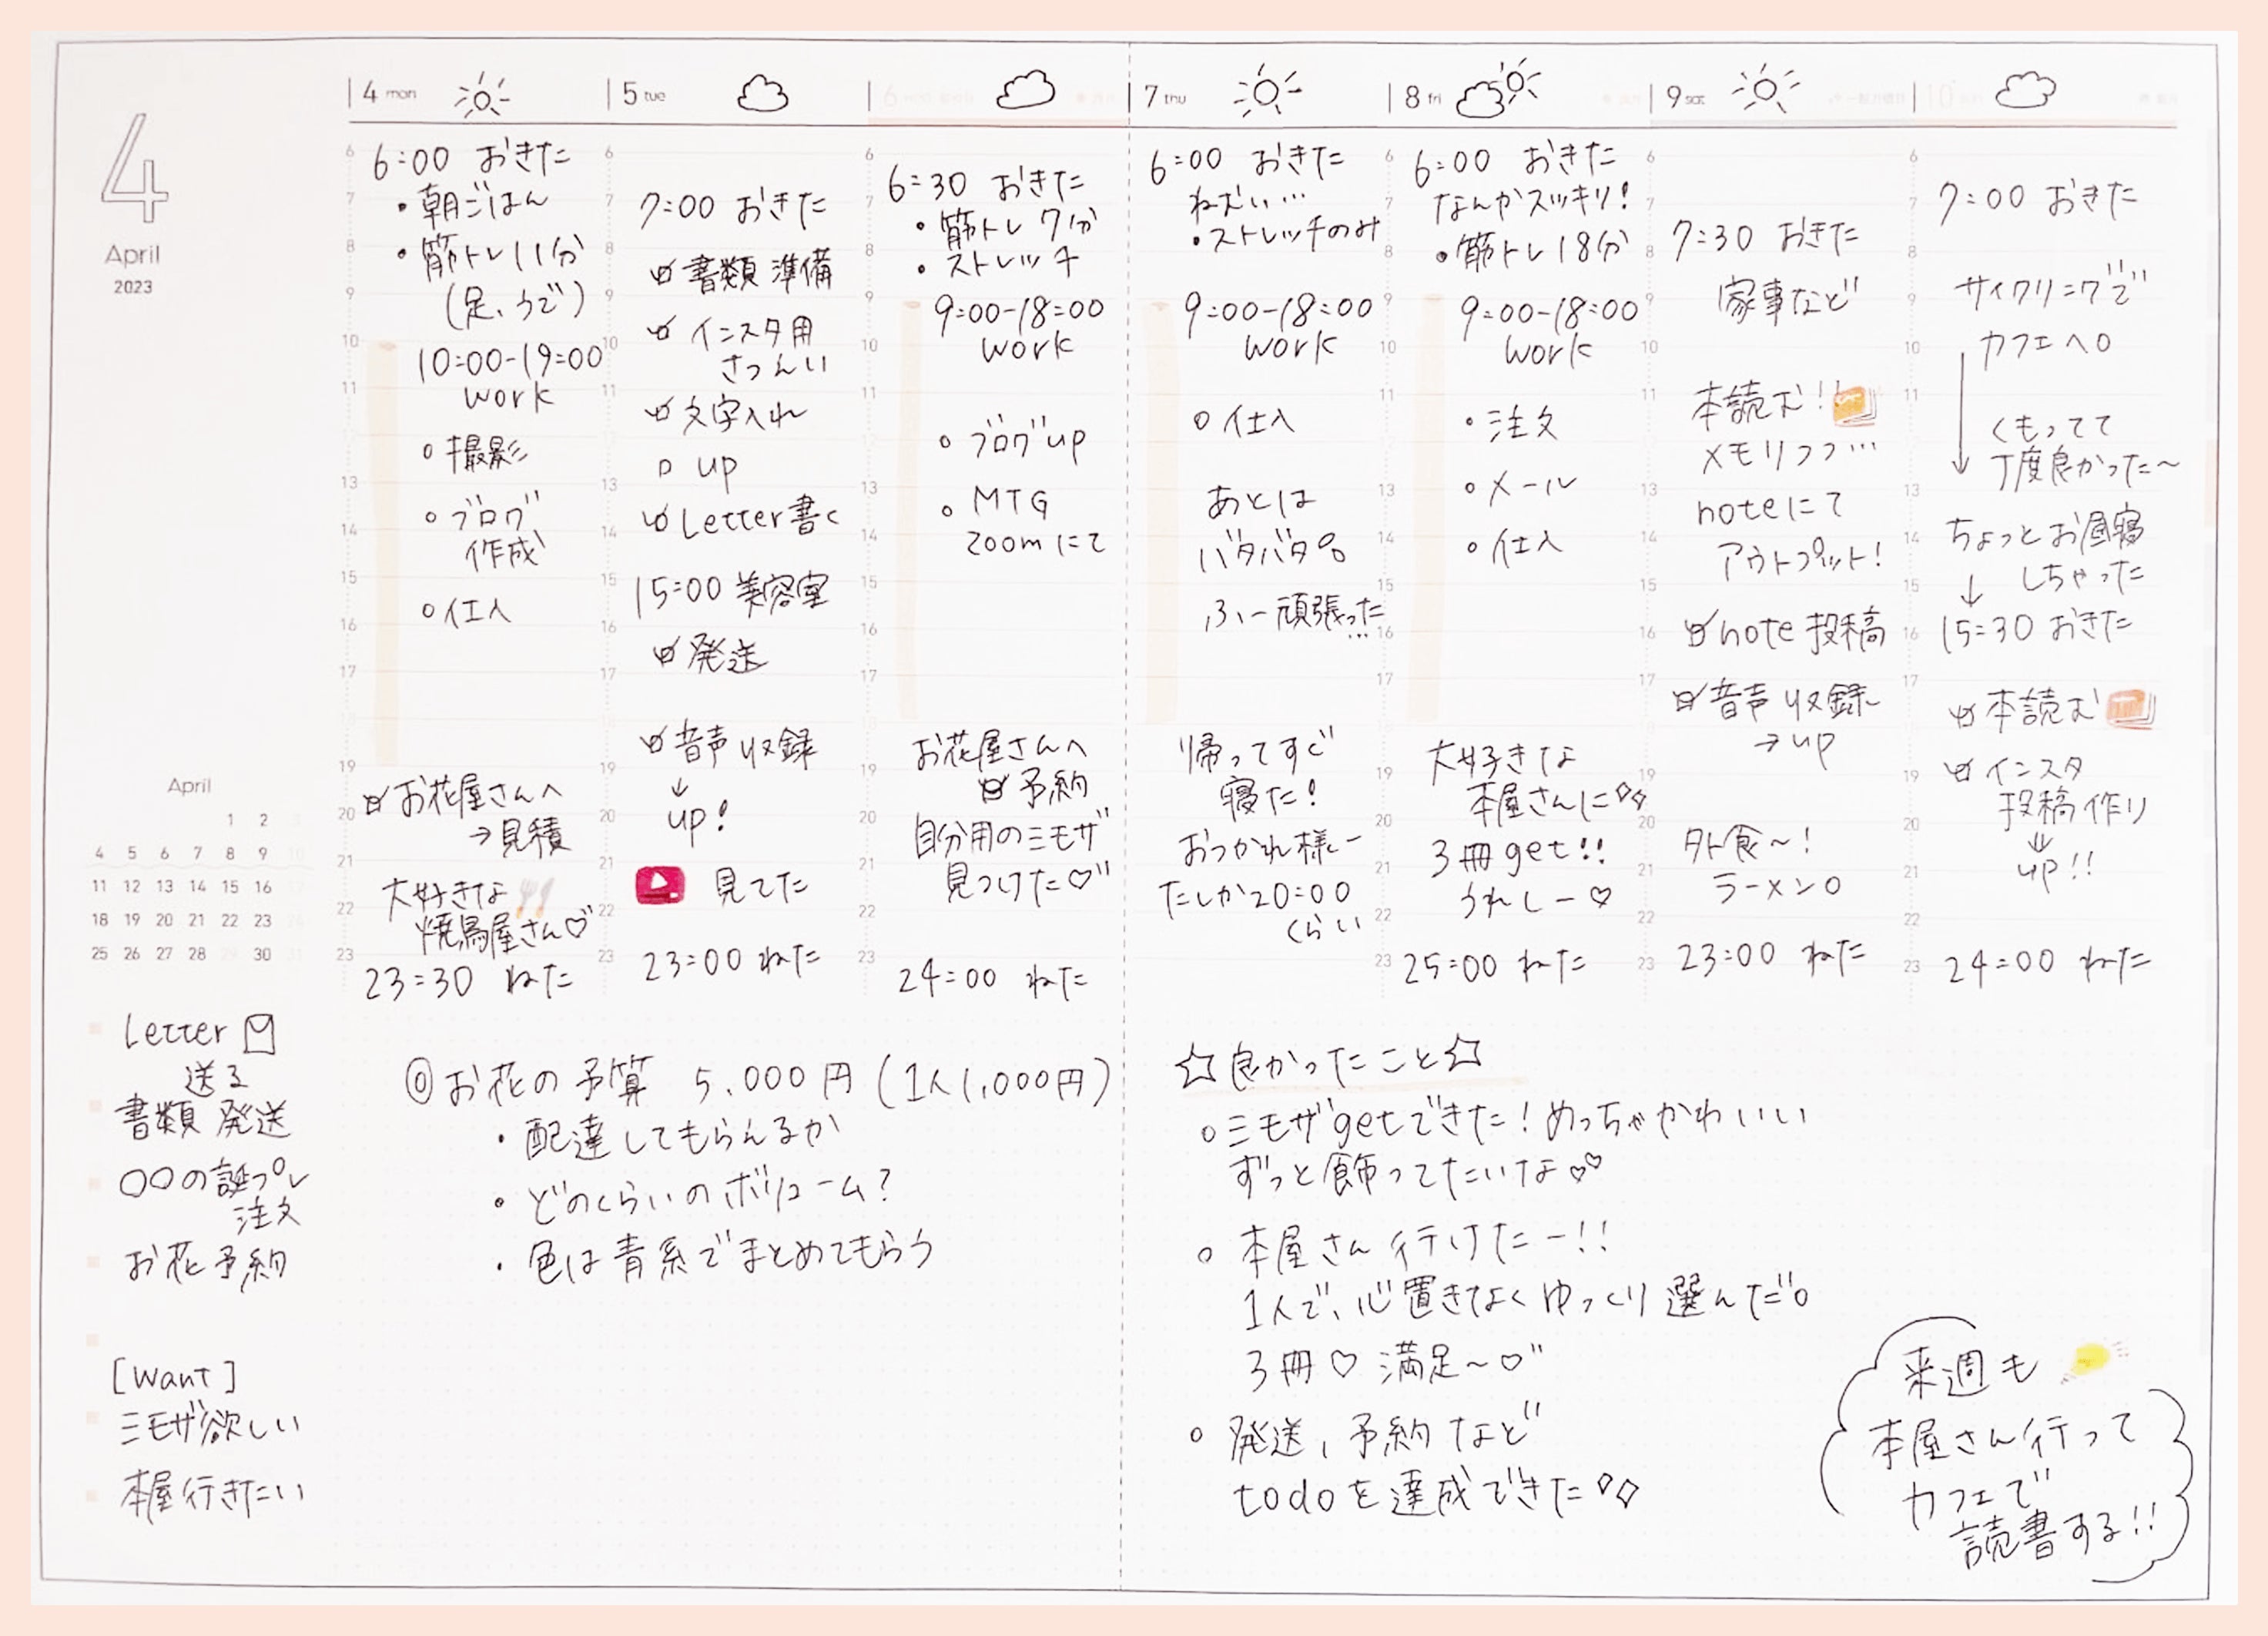 4
April
2023
4 mon
6:00 おきた
・朝ごはん
・筋トレ 11分
(足、うで)
10:00-19:00
work
○撮影
○ブログ
作成
○仕入
お花屋さんへ
→見積
大好きな
焼鳥屋さん♡
23:30 ねた
5 tue
7:00 おきた
書類 準備
インスタ用
さつえい
文字入れ
up
Letter書く
15:00 美容室
発送
音声収録
↓
up!
見てた
23:00 ねた
6
6:30 おきた
・筋トレ 7分
・ストレッチ
9:00-18:00
work
○ブログup
○MTG
zoomにて
お花屋さんへ
予約
自分用のミモザ
見つけた♡
24:00 ねた
7 thu
6:00 おきた
ねむい…
・ストレッチのみ
9:00-18:00
work
○仕入
あとは
バタバタ。
ふー頑張った…
帰ってすぐ
寝た!
おつかれ様ー
たしか20:00
くらい
8 fri
6:00 おきた
なんかスッキリ!
・筋トレ 18分
9:00-18:00
work
○注文
○メール
○仕入
大好きな
本屋さんに
3冊get!!
うれしー♡
25:00 ねた
9 sat
7:30 おきた
家事など
本読む!!
メモリつつ…
noteにて
アウトプット!
note 投稿
音声収録
→up
外食〜!
ラーメン○
23:00 ねた
10
7:00 おきた
サイクリングで
カフェへ○
↓
くもってて
丁度良かった〜
ちょっとお昼寝
↓ しちゃった
15:30 おきた
本読む
インスタ
投稿作り
⇓
up!!
24:00 ねた
6 7 8 9 10 11 13 14 15 16 17 19 20 21 22 23
April
1 2
4 5 6 7 8 9 10
11 12 13 14 15 16
18 19 20 21 22 23
25 26 27 28 29 30 31
Letter
送る
書類 発送
○○の誕プレ
注文
お花予約
[Want]
ミモザ欲しい
本屋行きたい
◎お花の予算 5,000円(1人1,000円)
・配達してもらえるか
・どのくらいのボリューム?
・色は青系でまとめてもらう
☆良かったこと☆
○ミモザgetできた!めっちゃかわいい
ずっと飾ってたいな♡♡
○本屋さん行けたー!!
1人で、心置きなくゆっくり選んだ。
3冊♡ 満足〜♡
○発送、予約など
todoを達成できた
来週も
本屋さん行って
カフェで
読書する!!